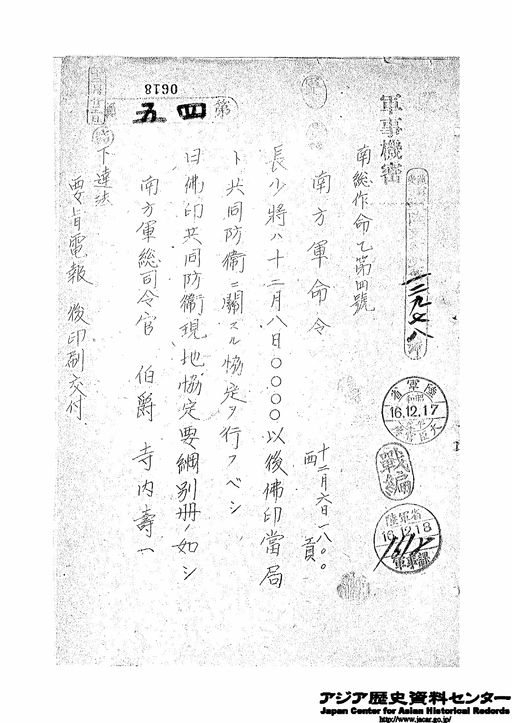 軍事機密
南総作命乙第四號
南方軍命令
十二月六日一八〇〇
西貢
長少將ハ十二月八日〇〇〇〇以後佛印當局
ト共同防衛ニ關スル協定ヲ行フベシ
日佛印共同防衛現地協定要綱別册ノ如シ
南方軍総司令官 伯爵 寺内壽一
下達法
要旨電報 後印刷交付
第
四五
0618
陸軍省
16.12.17
戰編
陸軍省
16.12.18
アジア歴史資料センター
Japan Center for Asian Historical Records
http://www.jacar.go.jp/